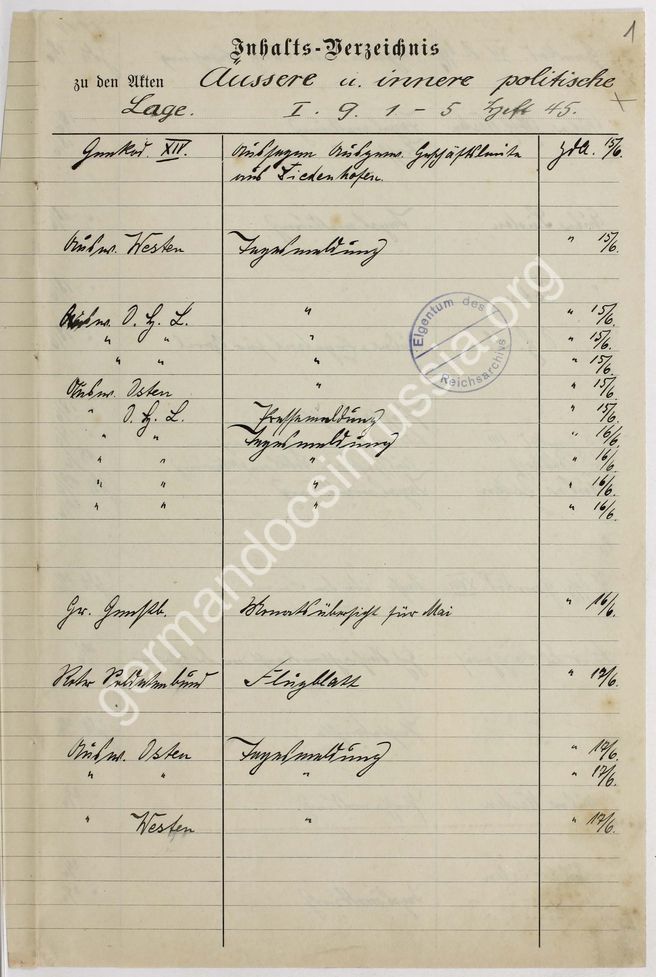 1
Inhalts-Verzeichnis
zu den Akten Äussere u. innere politische
Lage. I. 9. 1 - 5 Heft 45.
Genkdo. XIV. Aussagen Ausgew. Geschäftsleute zdA. 15/6.
aus Diedenhofen.
Ausw. Westen Tagesmeldung " 15/6.
Ausw. O. H. L. " " 15/6.
" " " " 15/6.
" " " " 15/6.
Ausw. Osten " " 15/6.
" O. H. L. Pressemeldung " 15/6.
" " Tagesmeldung " 16/6.
" " " " 16/6.
" " " " 16/6.
" " " " 16/6.
Gr. Genstb. Monatsübersicht für Mai " 16/6.
Roter Soldatenbund Flugblatt " 17/6.
Ausw. Osten Tagesmeldung " 17/6.
" " " " 17/6.
" Westen " " 17/6.
Eigentum des
Reichsarchivs
germandocsinrussia.org